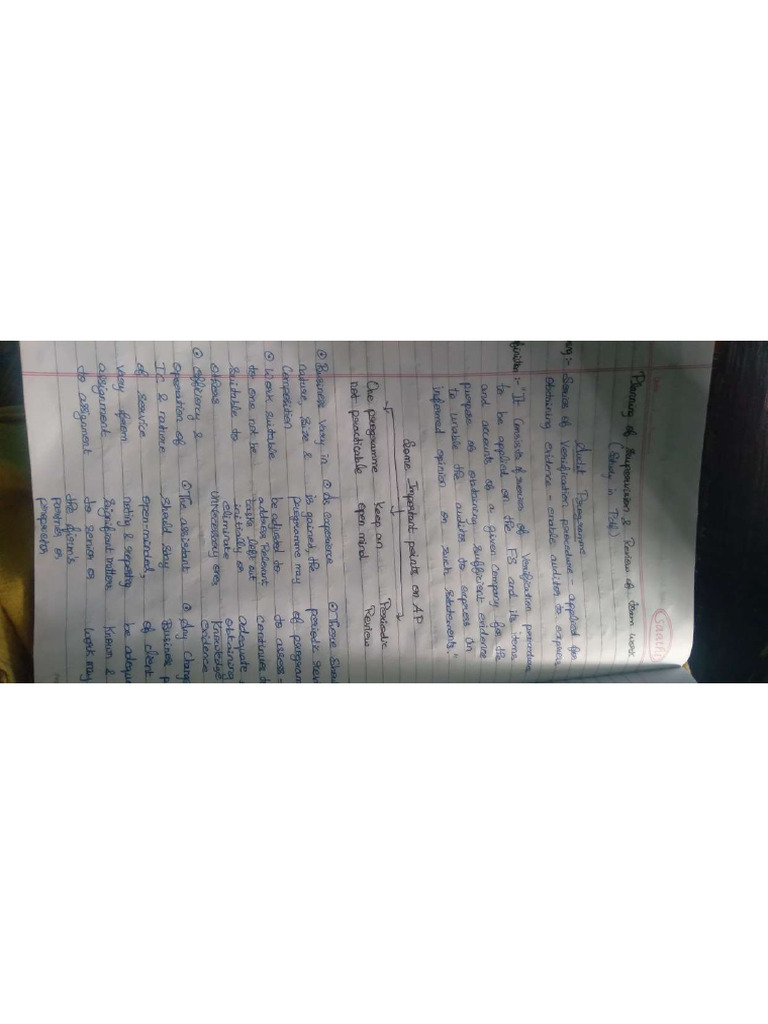 SA 200
Planning of Supervision & Review of team work
(Study in Tcwg)
Audit Programme
Series of Verification procedure - applied for
obtaining evidence - enable auditor to express
"It consists of series of Verification procedure
to be applied on the FS and its items
and accounts of a given Company for the
purpose of obtaining sufficient evidence
to unable the auditor to express an
informed opinion on such statements."
Some Important points on AP
One programme Keep an Periodic
not practicable open mind Review
⊙ Business vary in
nature, size &
Composition
⊙ Work suitable
to one not be
suitable to
others
⊙ Efficiency &
operation of
I.C & nature
of service
vary from
assignment
to assignment
⊙ As experience
is gained, the
programme may
be adjusted to
address Relevant
tasks, left out
initially or
eliminate
unnecessary ones
⊙ The assistant
should stay
open-minded,
noting & reporting
significant matters
to senior or
the firm's
partner or
proprietor
⊙ There
periodic
of program
to assess
continues
adequate
obtaining
Knowledge
evidence
⊙ Any chang
Business p
of client
be adequa
Known &
work may